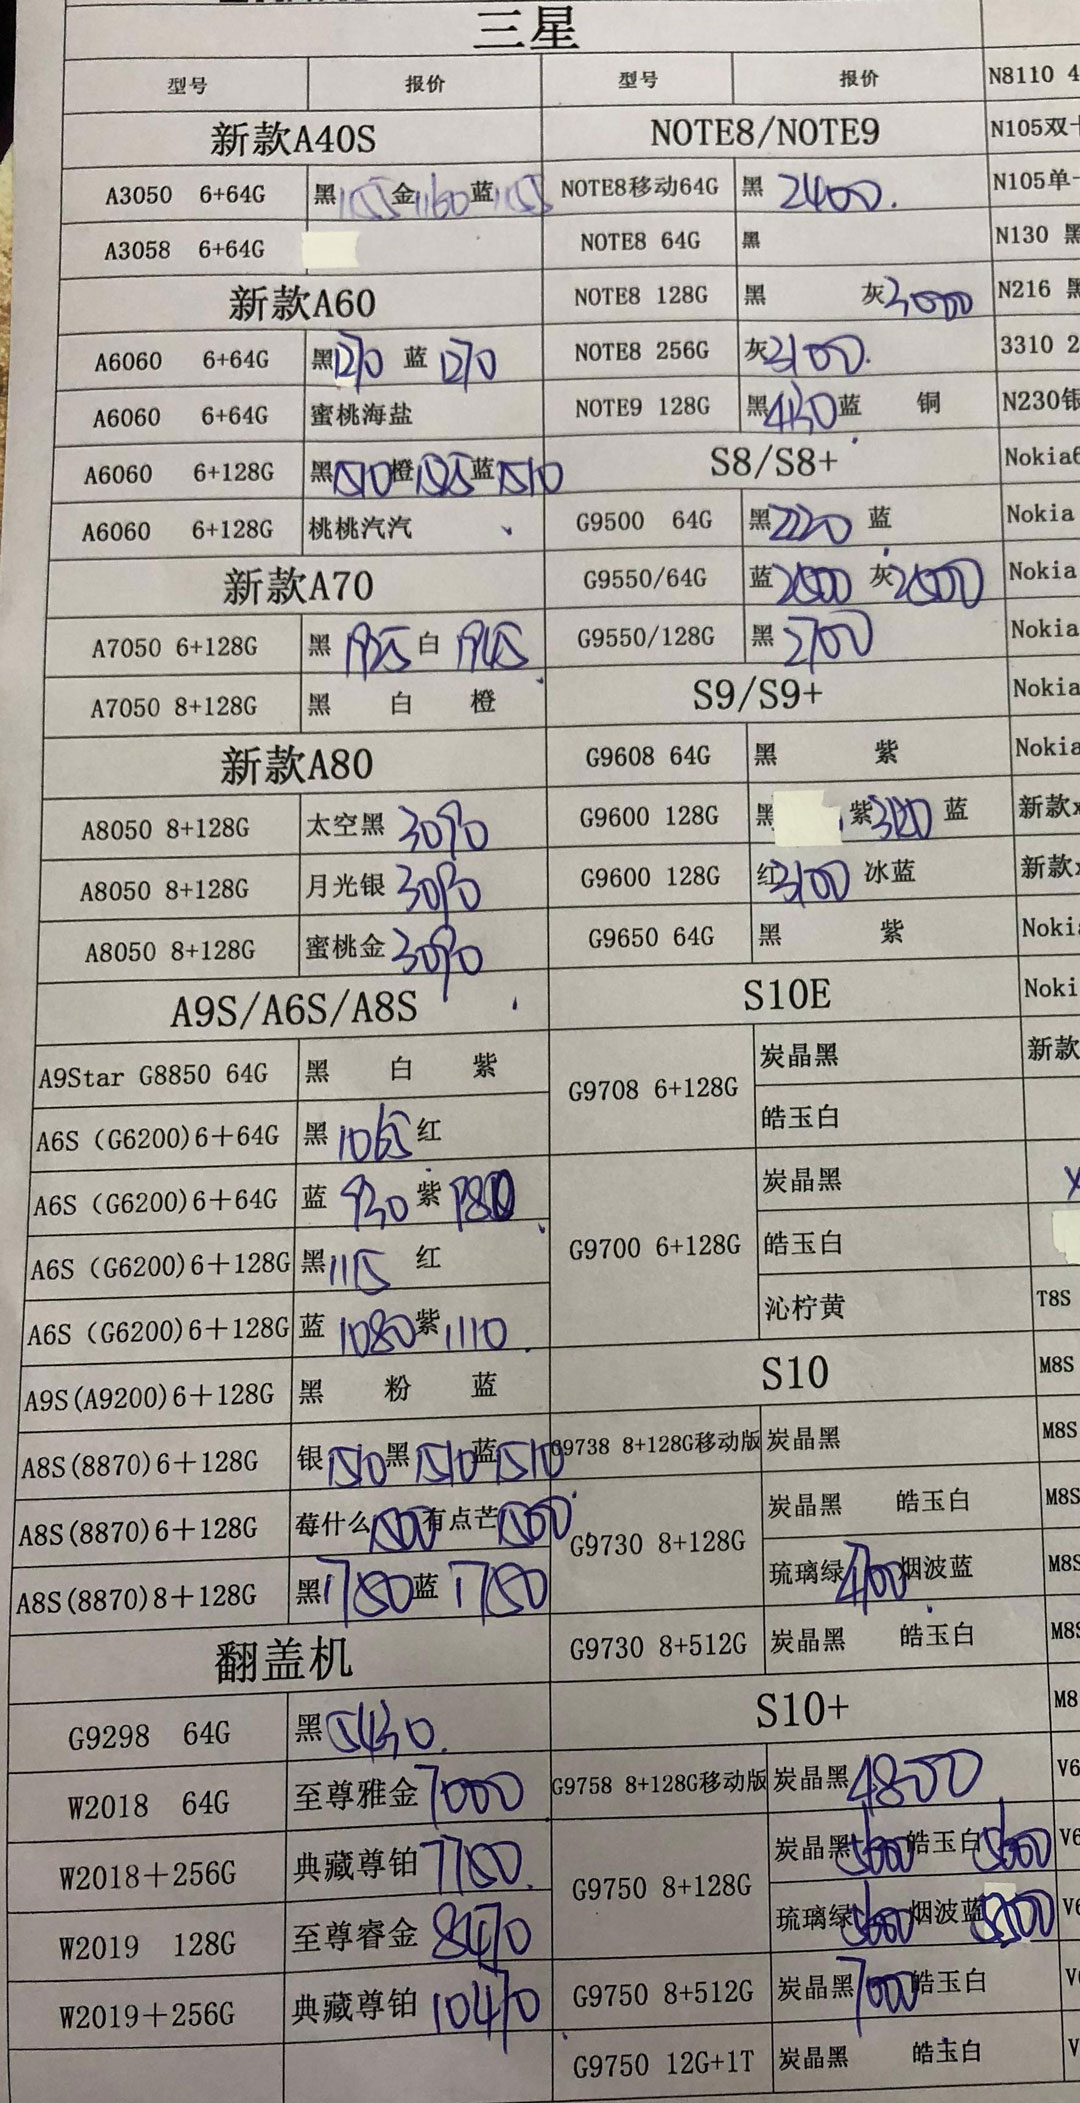 三星
型号 报价
新款A40S
A3050 6+64G 黑1155金1160蓝1155
A3058 6+64G
新款A60
A6060 6+64G 黑1270 蓝1270
A6060 6+64G 蜜桃海盐
A6060 6+128G 黑1510橙1525蓝1510
A6060 6+128G 桃桃汽汽
新款A70
A7050 6+128G 黑1925白1945
A7050 8+128G 黑 白 橙
新款A80
A8050 8+128G 太空黑3090
A8050 8+128G 月光银3090
A8050 8+128G 蜜桃金3090
A9S/A6S/A8S
A9Star G8850 64G 黑 白 紫
A6S(G6200)6+64G 黑1065红
A6S(G6200)6+64G 蓝930紫
A6S(G6200)6+128G 黑1115 红
A6S(G6200)6+128G 蓝1080紫1110
A9S(A9200)6+128G 黑 粉 蓝
A8S(8870)6+128G 银1510黑1510蓝1510
A8S(8870)6+128G 莓什么1500有点芒1500
A8S(8870)8+128G 黑1750蓝1750
翻盖机
G9298 64G 黑5430.
W2018 64G 至尊雅金7000
W2018+256G 典藏尊铂7750.
W2019 128G 至尊睿金8470
W2019+256G 典藏尊铂10470
型号 报价
NOTE8/NOTE9
NOTE8移动64G 黑 2400.
NOTE8 64G 黑
NOTE8 128G 黑 灰3000
NOTE8 256G 灰3100.
NOTE9 128G 黑蓝 铜
S8/S8+
G9500 64G 黑2220 蓝
G9550/64G 蓝2500 灰2500
G9550/128G 黑2700
S9/S9+
G9608 64G 黑 紫
G9600 128G 黑 紫 蓝
G9600 128G 红3100 冰蓝
G9650 64G 黑 紫
S10E
G9708 6+128G 炭晶黑
皓玉白
G9700 6+128G 炭晶黑
皓玉白
沁柠黄
S10
G9738 8+128G移动版 炭晶黑
G9730 8+128G 炭晶黑 皓玉白
琉璃绿4700烟波蓝
G9730 8+512G 炭晶黑 皓玉白
S10+
G9758 8+128G移动版 炭晶黑4800
G9750 8+128G 炭晶黑5600皓玉白5600
琉璃绿5600烟波蓝
G9750 8+512G 炭晶黑7000皓玉白
G9750 12G+1T 炭晶黑 皓玉白
N8110 4
N105双
N105单
N130 黑
N216 黑
3310 2
N230银
Nokia6
Nokia
Nokia
Nokia
Nokia
Nokia
新款x
新款
Noki
Noki
新款
T8S
M8S
M8S
M8S
M8S
M8S
M8
V6
V6
V6
V
V